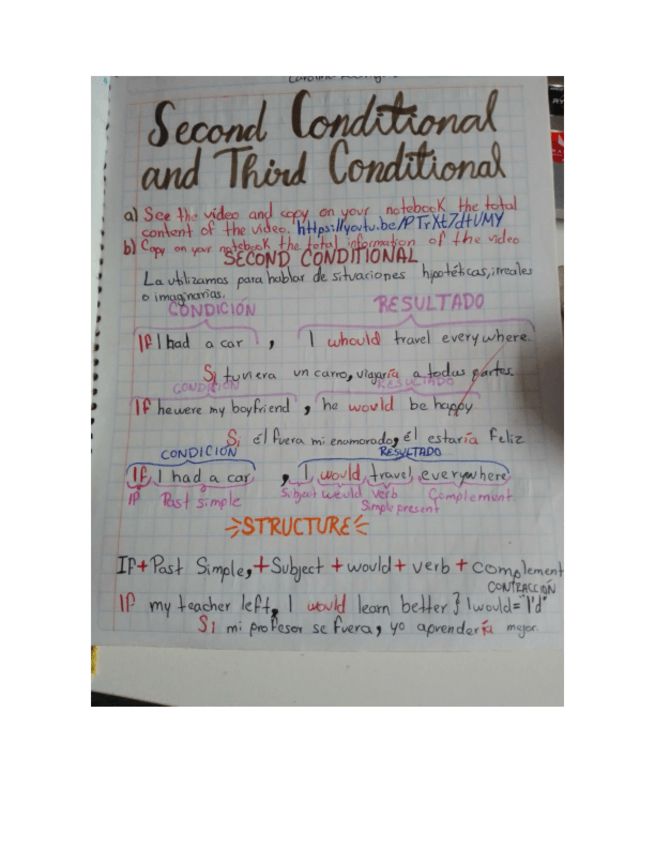 Second Conditional
and Third Conditional
a) See the video and copy on your notebook the total
content of the video. https://youtu.be/PTrXt7dtUMY
b) Copy on your notebook the total information of the video
SECOND CONDITIONAL
La utilizamos para hablar de situaciones hipotéticas, irreales
o imaginarias.
CONDICIÓN RESULTADO
If I had a car , I whould travel everywhere.
Si tuviera un carro, viajaría a todas partes.
CONDICIÓN RESULTADO
If he were my boyfriend , he would be happy
Si él fuera mi enamorado, él estaría feliz
CONDICIÓN RESULTADO
If I had a car , I would travel everywhere
IF Past simple Subjat would verb Complement.
Simple present
STRUCTURE
If + Past Simple, + Subject + would + verb + complement
CONTRACCIÓN
If my teacher left, I would learn better } I would = "I'd"
Si mi profesor se fuera, yo aprendería mejor.